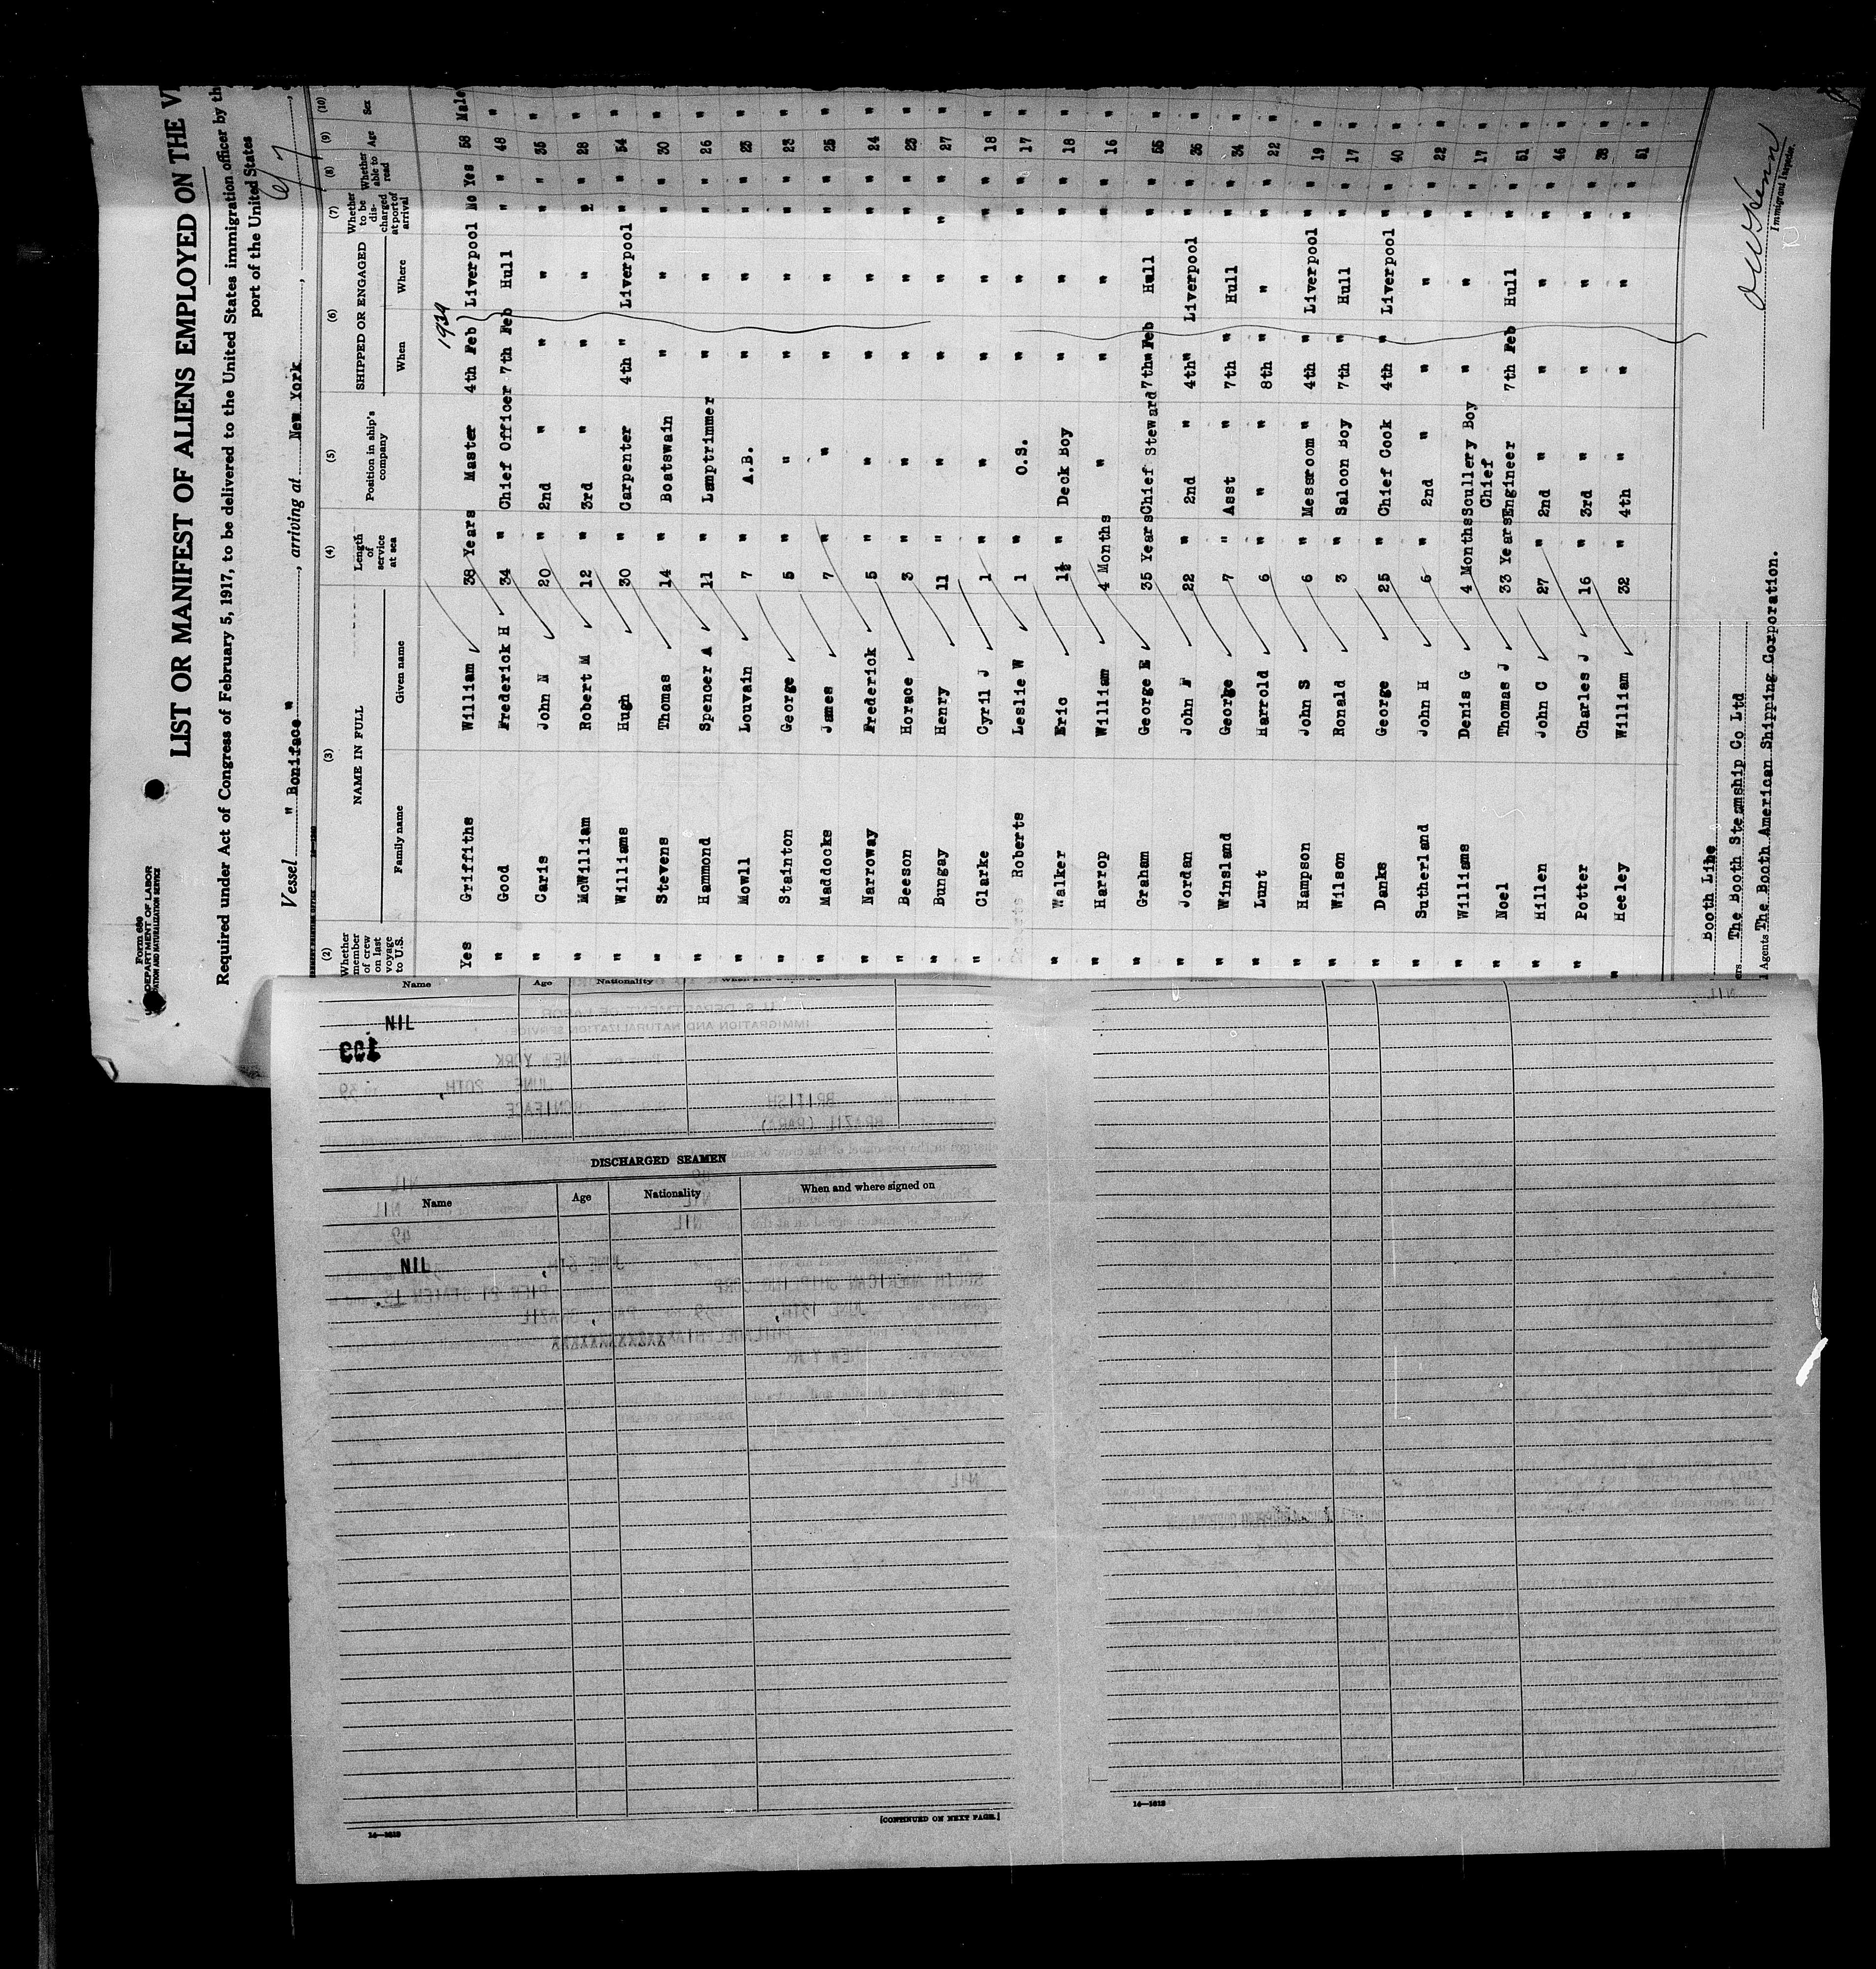 Form 689
DEPARTMENT OF LABOR
IMMIGRATION AND NATURALIZATION SERVICE
LIST OR MANIFEST OF ALIENS EMPLOYED ON THE
Required under Act of Congress of February 5, 1917, to be delivered to the United States immigration officer by the
port of the United States
Vessel " Boniface ", arriving at New York,
(2) (3) (4) (5) (6) (7) (8) (9) (10)
Whether member of crew on last voyage to U.S. NAME IN FULL Length of service at sea Position in ship's company SHIPPED OR ENGAGED Whether to be discharged at port of arrival Whether able to read Age Sex
Family name Given name When Where
1939
Yes Griffiths William 38 Years Master 4th Feb Liverpool No Yes 58 Male
" Good Frederick H 34 " Chief Officer 7th Feb Hull " " 48 "
" Caris John N 20 " 2nd " " " " " 35 "
" McWilliam Robert M 12 " 3rd " " " " " 28 "
" Williams Hugh 30 " Carpenter 4th " Liverpool " " 54 "
" Stevens Thomas 14 " Boatswain " " " " 30 "
" Hammond Spencer A 11 " Lamptrimmer " " " " 26 "
" Mowll Louvain 7 " A.B. " " " " 23 "
" Stainton George 5 " " " " " " 23 "
" Maddocks James 7 " " " " " " 25 "
" Narroway Frederick 5 " " " " " " 24 "
" Beeson Horace 3 " " " " " " 23 "
" Bungay Henry 11 " " " " " " 27 "
" Clarke Cyril J 1 " " " " " " 18 "
Roberts Leslie W 1 " O.S. " " " " 17 "
" Walker Eric 1½ " Deck Boy " " " " 18 "
" Harrop William 4 Months " " " " " 16 "
" Graham George E 35 Years Chief Steward 7th Feb Hull " " 55 "
" Jordan John F 22 " 2nd " 4th " Liverpool " " 36 "
" Winsland George 7 " Asst " 7th " Hull " " 34 "
" Lunt Harrold 6 " " " 8th " " " " 22 "
" Hampson John S 6 " Messroom " 4th " Liverpool " " 19 "
" Wilson Ronald 3 " Saloon Boy 7th " Hull " " 17 "
" Danks George 25 " Chief Cook 4th " Liverpool " " 40 "
" Sutherland John H 6 " 2nd " " " " " 22 "
" Williams Denis G 4 Months Scullery Boy " " " " 17 "
" Noel Thomas J 33 Years Chief Engineer 7th Feb Hull " " 51 "
" Hillen John C 27 " 2nd " " " " " 46 "
" Potter Charles J 16 " 3rd " " " " " 38 "
" Heeley William 32 " 4th " " " " " 51 "
Booth Line
The Booth Steamship Co Ltd
Agents The Booth American Shipping Corporation.
Immigrant Inspector.
Name Age Nationality
NIL
DISCHARGED SEAMEN
Name Age Nationality When and where signed on
NIL
[CONTINUED ON NEXT PAGE.]
14—1613
14—1613